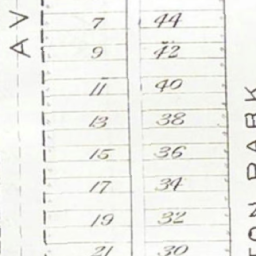 AV
7 44
9 42
11 40
13 38
15 36
17 34
19 32
21 30
TON PARK